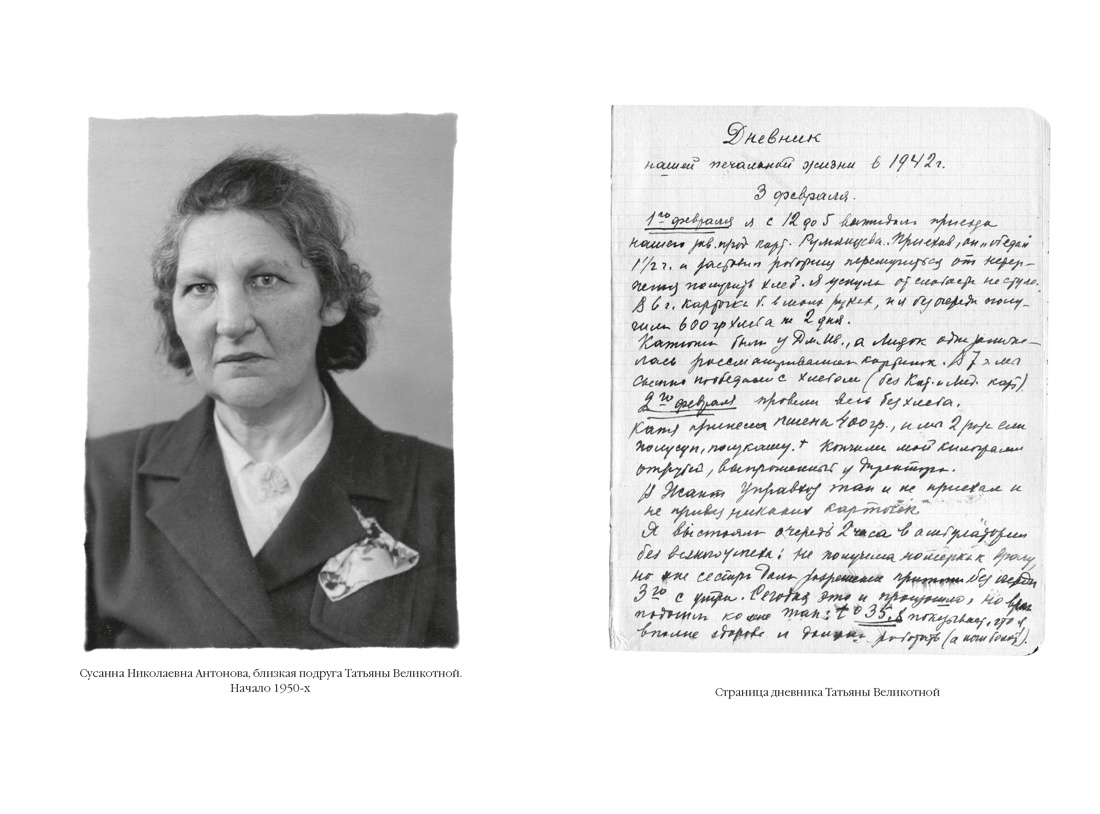 Сусанна Николаевна Антонова, близкая подруга Татьяны Великотной.
Начало 1950-х
Дневник
нашей печальной жизни в 1942 г.
3 февраля.
1го февраля я с 12 до 5 выжидала приезда
нашего зав. прод. карт. Румянцева. Приехав, он „обедал
1 1/2 г. и заставил работниц перемучиться от нетер-
пения получить хлеб. Я уснула от слабости на стуле.
В 6 г. карточка б. в моих руках, и я без очереди полу-
чила 600 гр хлеба на 2 дня.
Катюша была у Дм. Ив., а Лидок одна занима-
лась рассматриванием картинок. В 7 ч мы
сытно пообедали с хлебом (без Кат. и Лид. карт)
2го февраля провели весь без хлеба.
Катя принесла пшена 400 гр., и мы 2 раза ели
полусуп, полукашу. + Кончили мой килограмм
отрубей, выпрошенный у Директора.
В Жакт Управхоз так и не приехал и
не привез никаких карточек
Я выстояла очередь 2 часа в амбулатории
без всякого успеха: не получила номерка к врачу,
но мне сестра дала разрешение притти без очереди
3го с утра. Сегодня это и произошло, но врач
подошел ко мне так: t° 35,8 показывает, что я
вполне здорова и должна работать (а ноги болят).
Страница дневника Татьяны Великотной